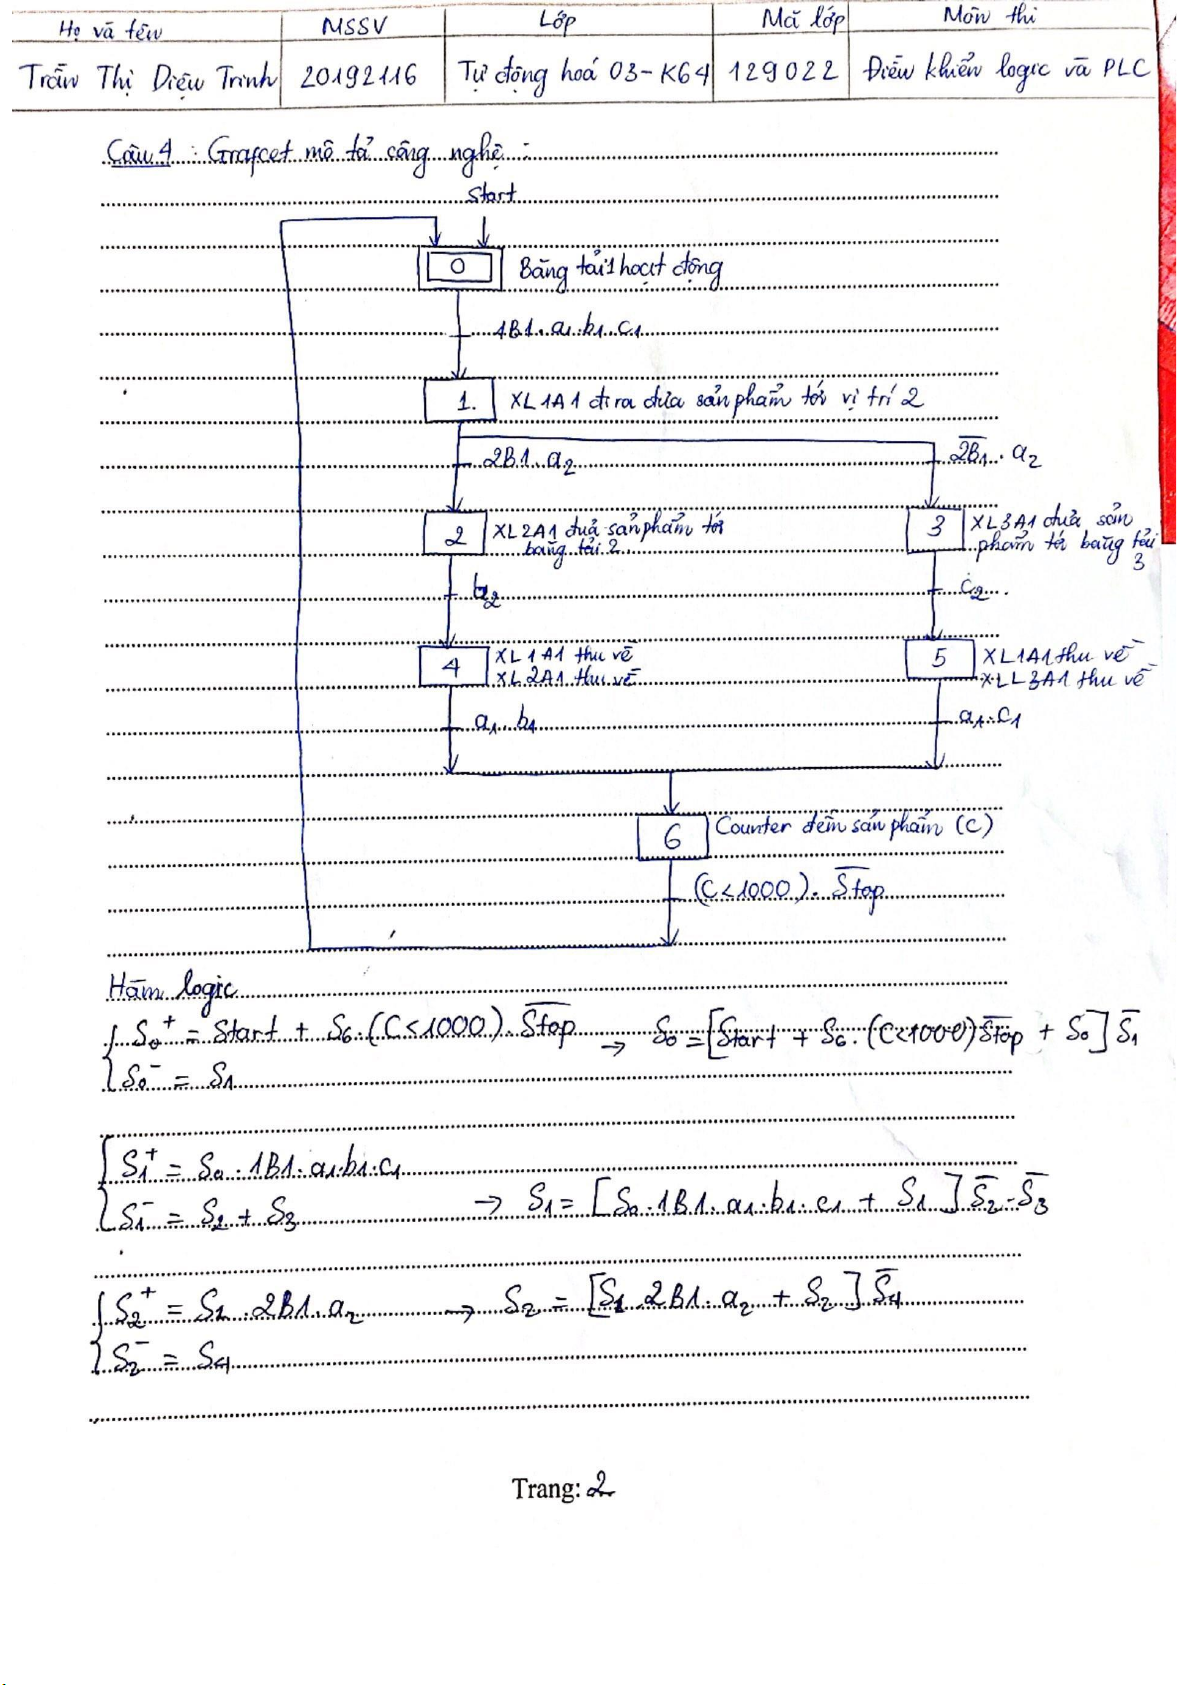 Họ và tên MSSV Lớp Mã lớp Môn thi
Trần Thị Diệu Trinh 20192116 Tự động hoá 03-K64 129022 Điều khiển logic và PLC
Câu 4 : Grafcet mô tả công nghệ :
Start
0 Băng tải 1 hoạt động
1B1.a1.b1.c1
1. XL1A1 đi ra đưa sản phẩm tới vị trí 2
2B1.a2 \overline{2B1}.a2
2 XL2A1 đưa sản phẩm tới 3 XL3A1 đưa sản
băng tải 2 phẩm tới băng tải
3
b2 c2
4 XL1A1 thu về 5 XL1A1 thu về
XL2A1 thu về XLL3A1 thu về
a1.b1 a1.c1
6 Counter đếm sản phẩm (C)
(C<1000).\overline{Stop}
Hàm logic
S0+ = Start + S6.(C<1000).\overline{Stop} → S0 = [Start + S6.(C<1000)\overline{Stop} + S0]\overline{S1}
S0- = S1
S1+ = S0.1B1.a1.b1.c1
S1- = S2 + S3 → S1 = [S0.1B1.a1.b1.c1 + S1]\overline{S2}.\overline{S3}
S2+ = S1.2B1.a2 → S2 = [S1.2B1.a2 + S2]\overline{S4}
S2- = S4
Trang: 2